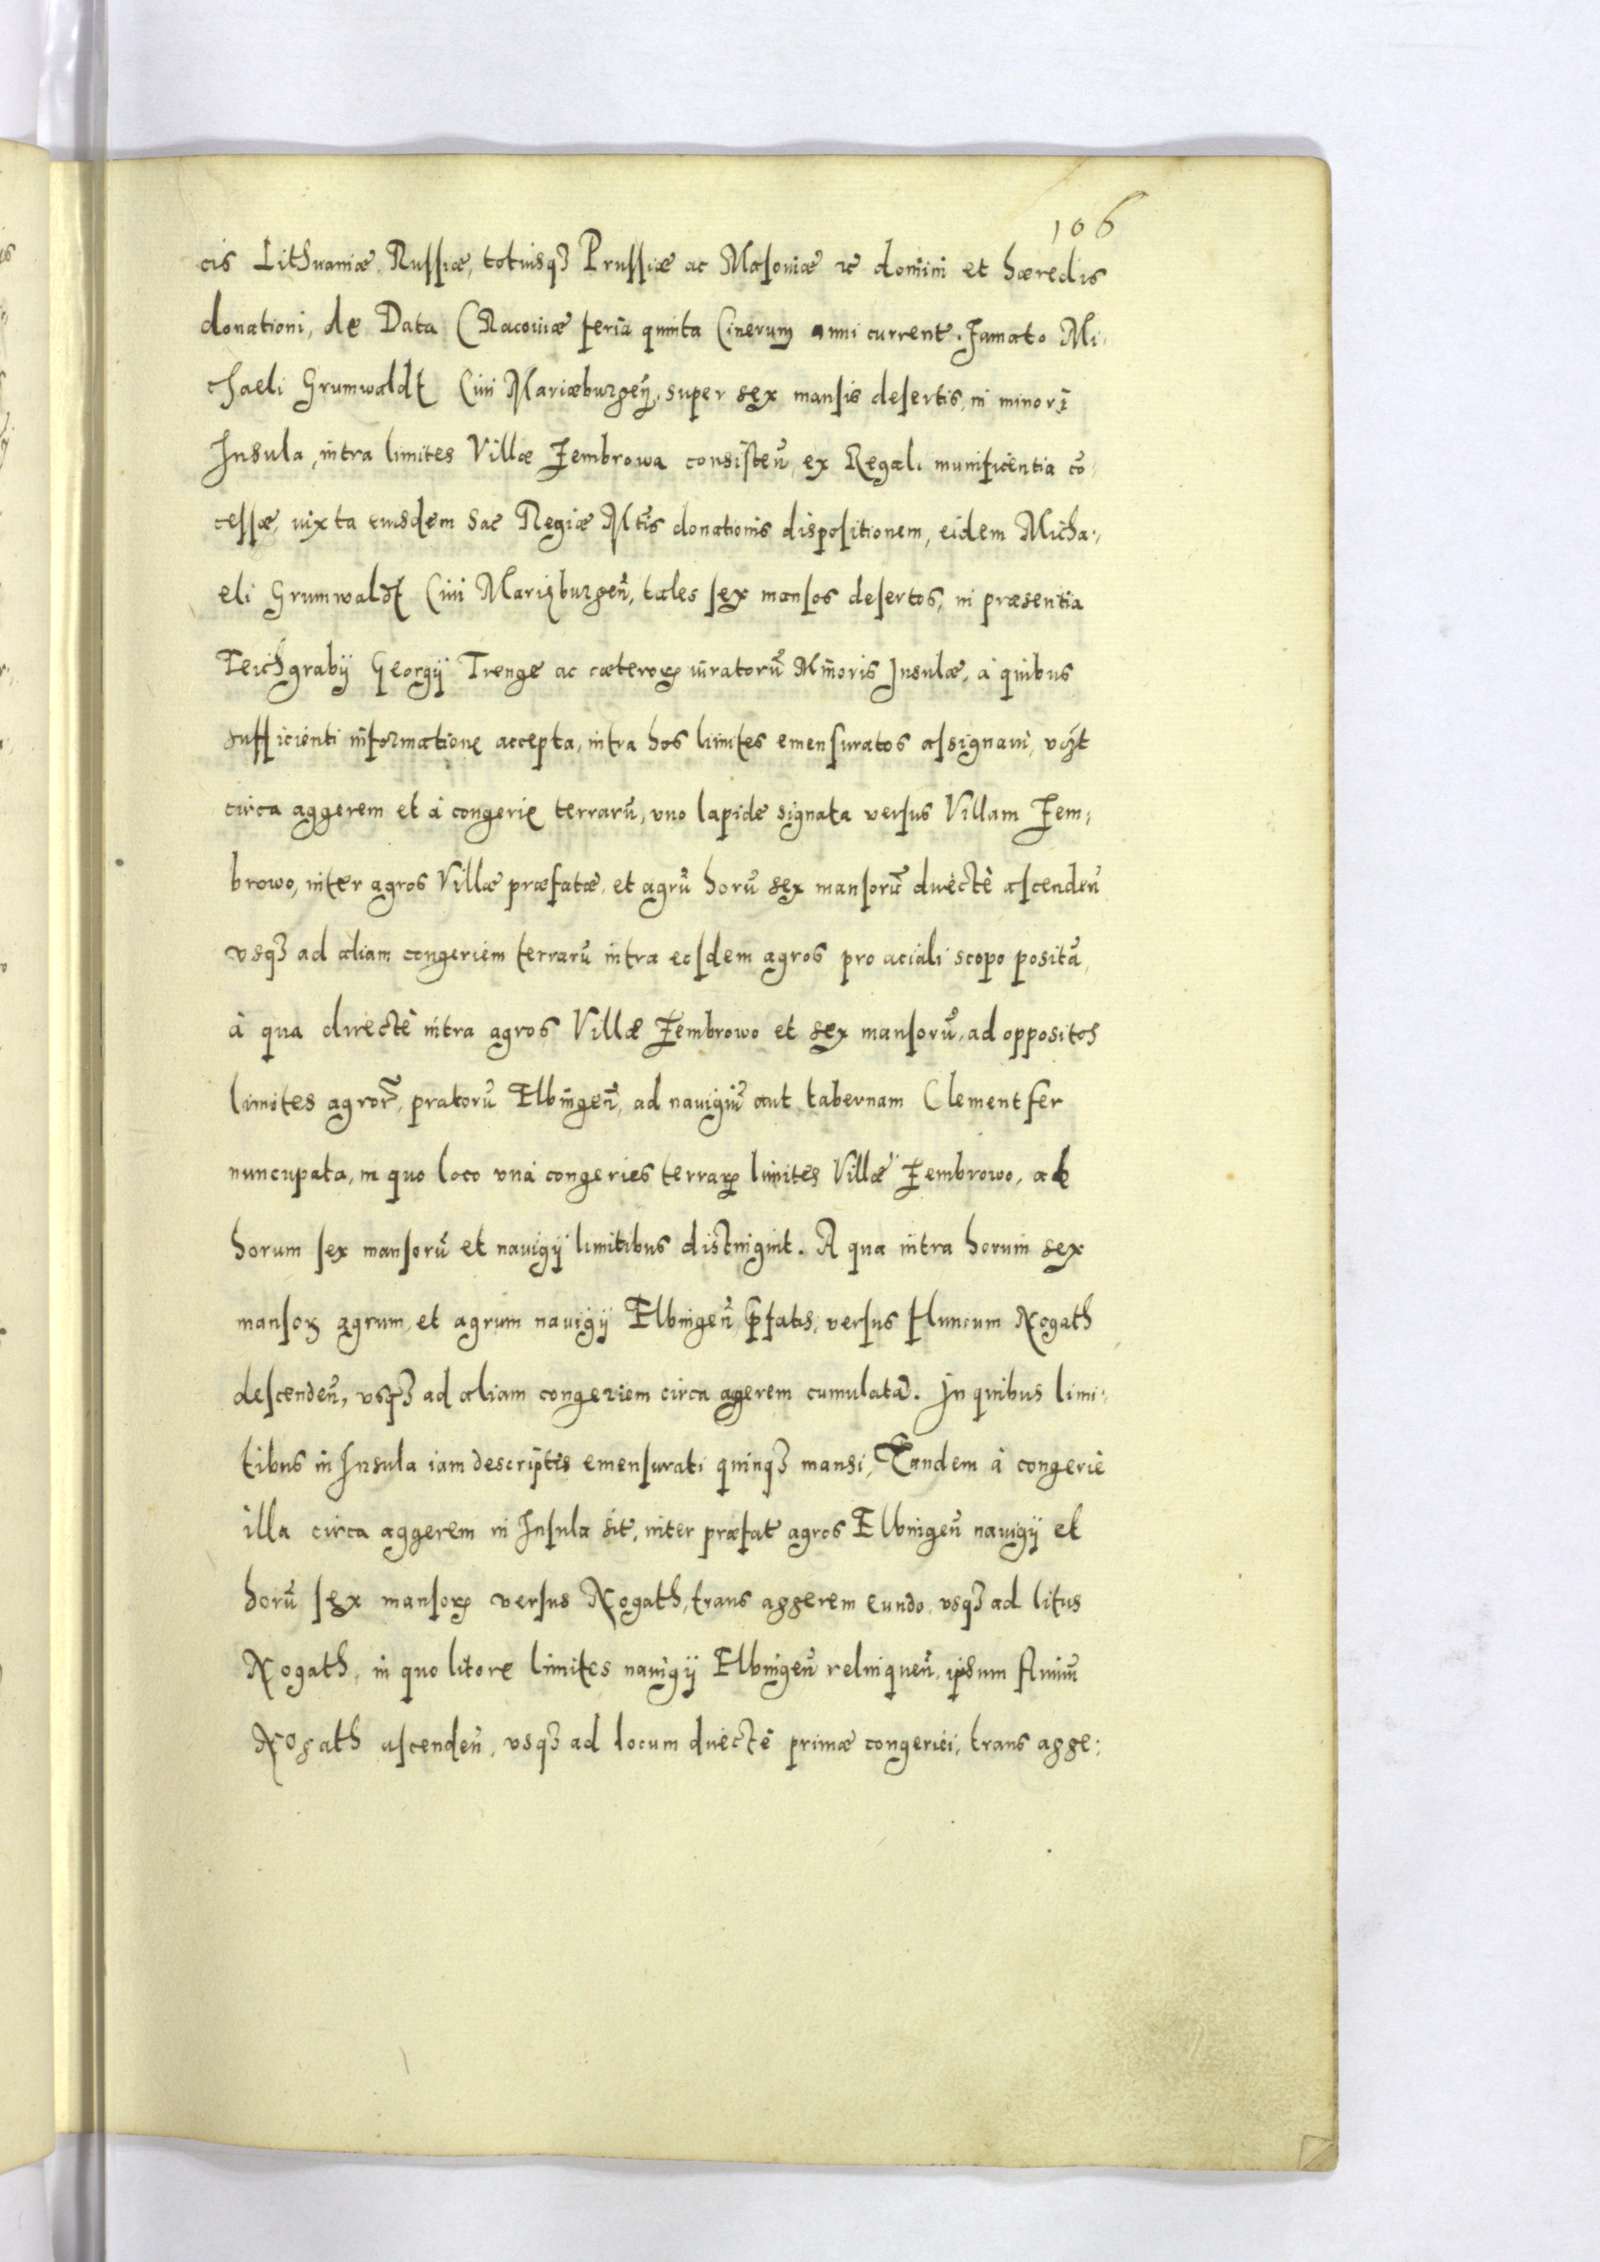 106
cis Lithuaniæ, Russiæ, totiusqꝫ Prussiæ ac Masoviæ ꝛc domini et hæredis
donationi, de Data Cracoviæ feria quinta Cinerum anni current. Famato Mi-
chaeli Grunwaldt Civi Mariæburgeñ, super sex mansis desertis, in minori
Insula, intra limites Villæ Zembrowa consisteñ, ex Regali munificentia cō-
cessæ, iuxta eiusdem Sac Regiæ Mtis donationis dispositionem, eidem Micha-
eli Grunwaldt Civi Mariæburgeñ, tales sex mansos desertos, in præsentia
Teichgrabij Georgij Trenge ac cæteroꝝ iuratorū Minoris Insulæ, à quibus
sufficienti informatione accepta, intra hos limites emensuratos assignavi, vꝫt
circa aggerem et à congerie terrarū, vno lapide signata versus Villam Zem-
browo, inter agros Villæ præfatæ, et agrū horū sex mansorū directè ascendeñ
vsqꝫ ad aliam congeriem terrarū intra eosdem agros pro aciali scopo positā,
à qua directè intra agros Villæ Zembrowo et sex mansorū, ad oppositos
limites agror̃, pratorū Elbingeñ, ad navigiū aut tabernam Clementfer
nuncupata, in quo loco vna congeries terraꝝ limites Villæ Zembrowo, ab
horum sex mansorū et navigij limitibus distinguit. A qua intra horum sex
mansoꝝ agrum, et agrum navigij Elbingeñ p̄fatis, versus fluvium Nogath
descendeñ, vsqꝫ ad aliam congeriem circa agerem cumulatā. In quibus limi-
tibus in Insula iam descriptis emensurati quinqꝫ mansi, Tandem à congerie
illa circa aggerem in Insula sit, inter præfat agros Elbingeñ navigij et
horū sex mansoꝝ versus Nogath, trans aggerem eundo, vsqꝫ ad litus
Nogath, in quo litore limites navigij Elbingeñ relinqueñ, ipsum fluviū
Nogath ascendeñ, vsqꝫ ad locum directè primæ congeriei, trans agge-